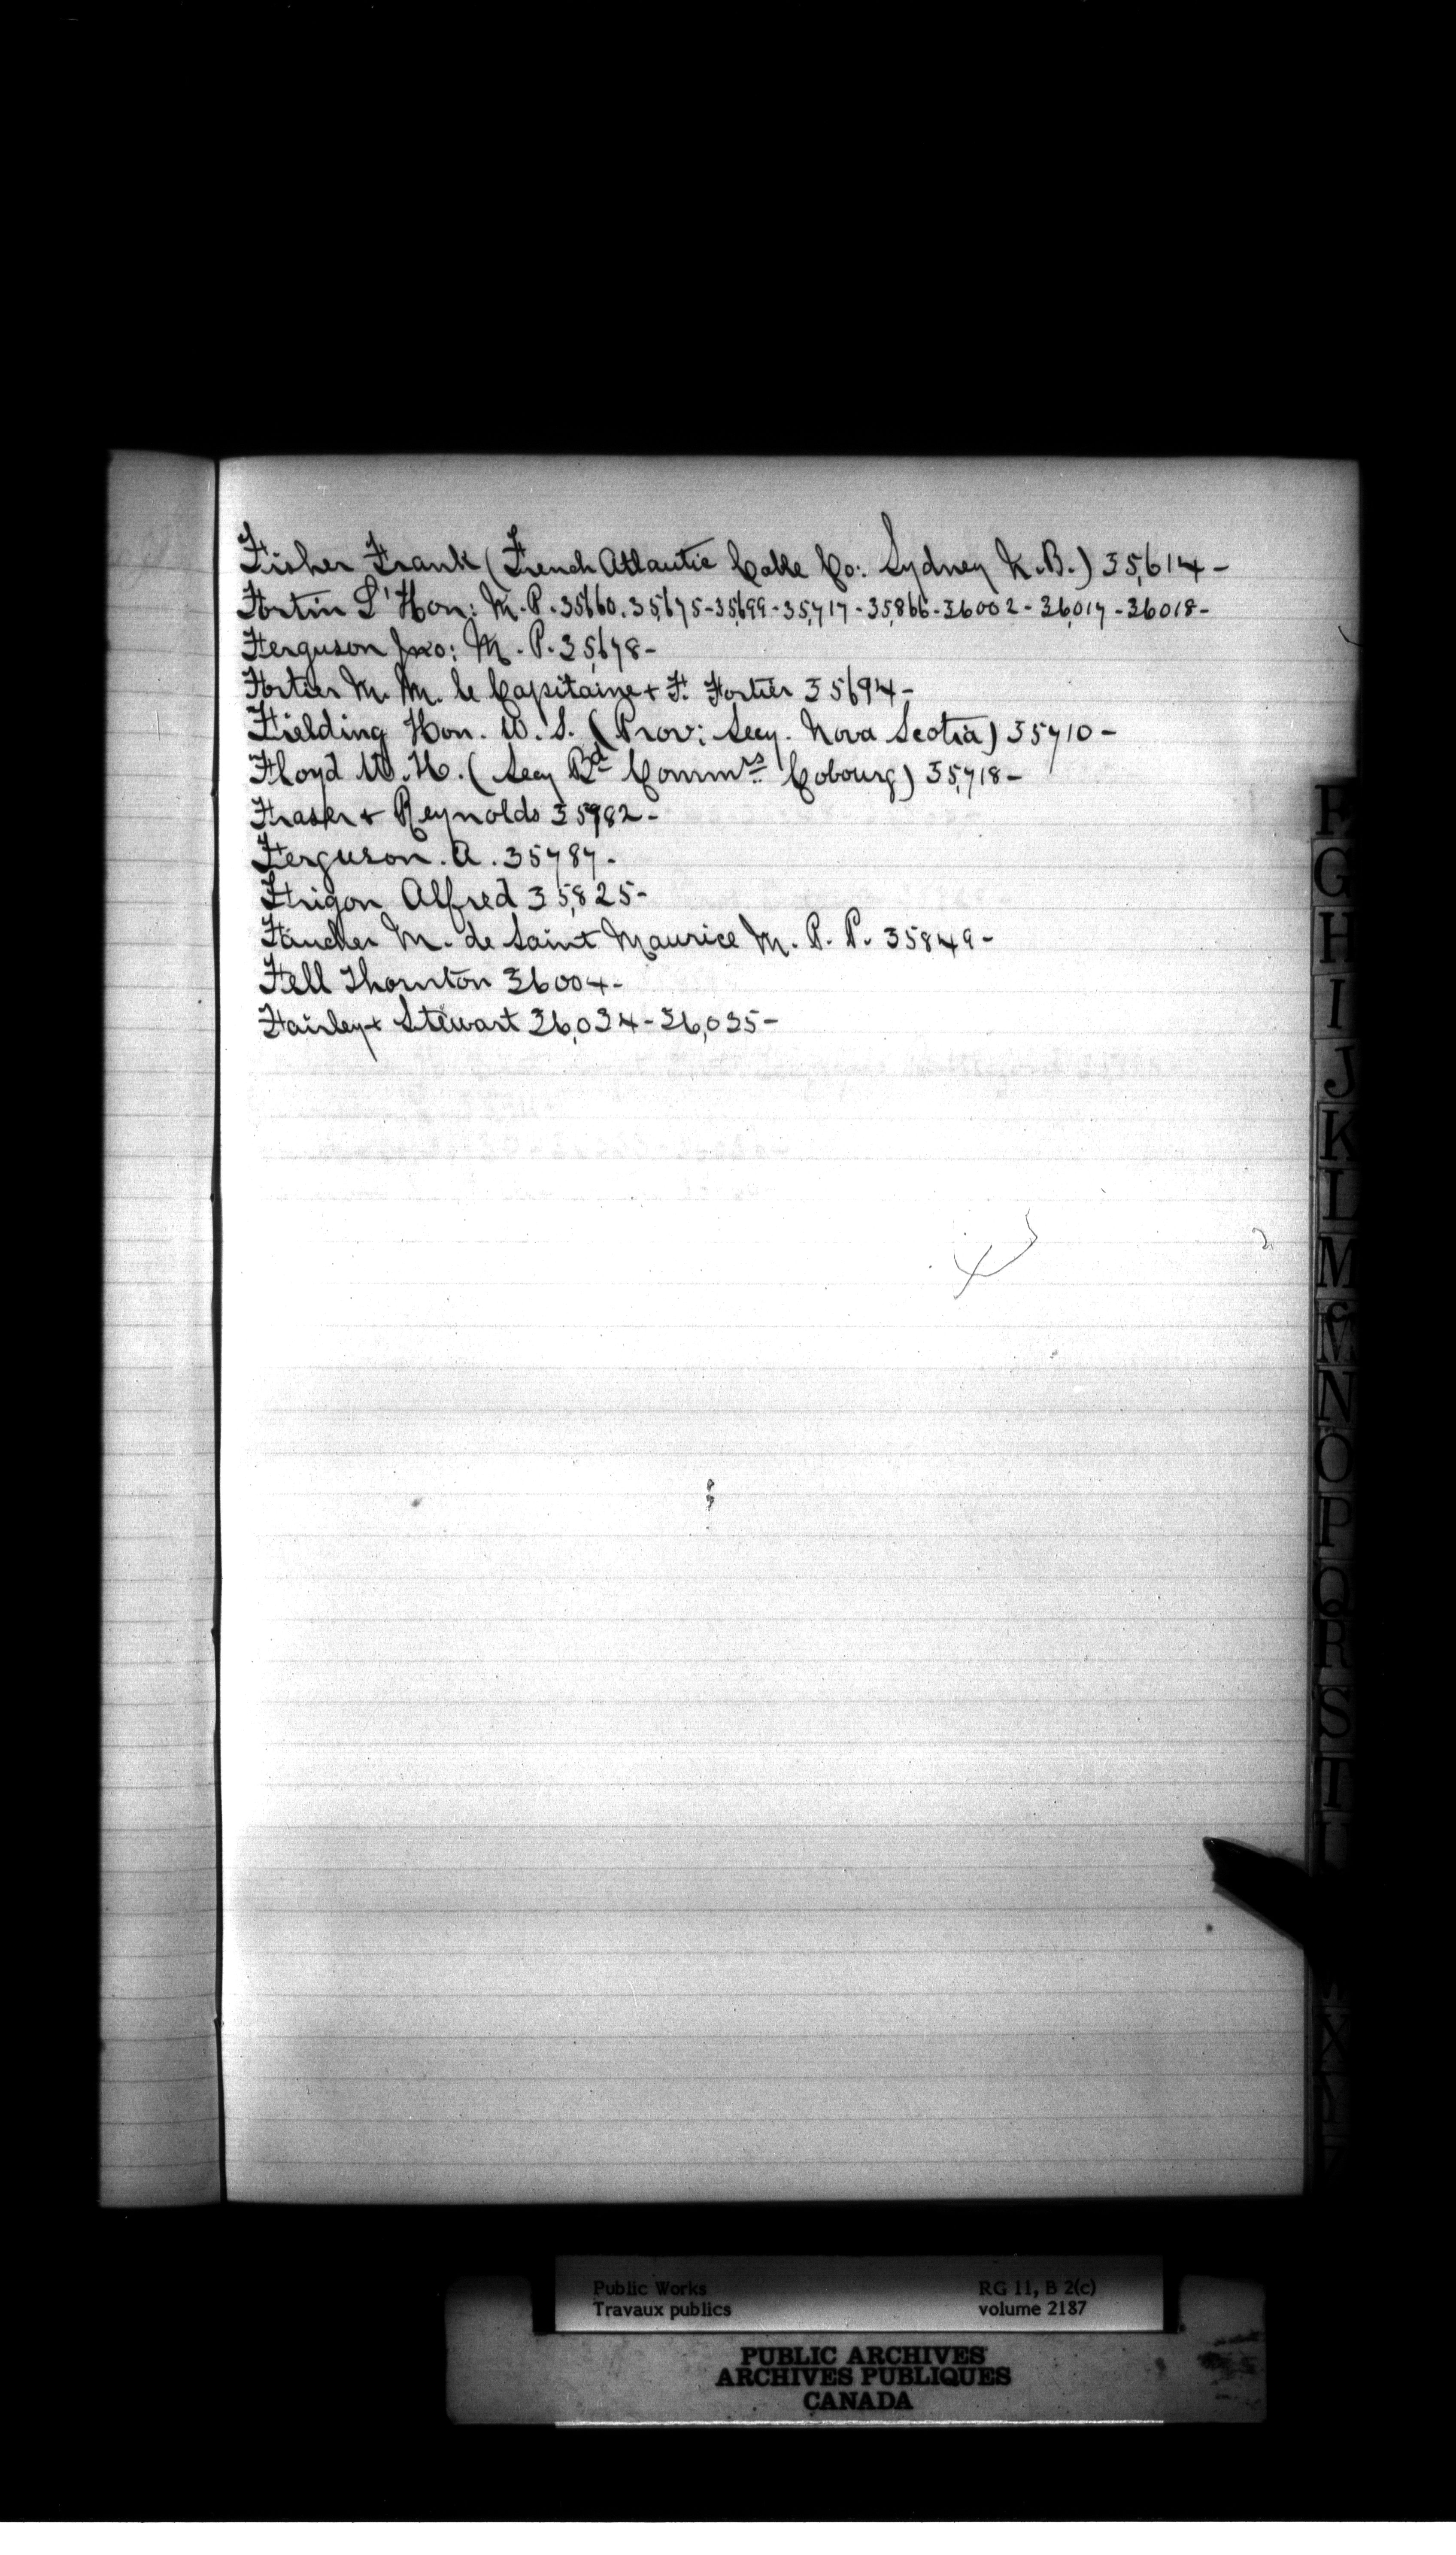 Fisher Frank (French Atlantic Cable Co: Sydney N.B.) 35,614-
Fortin L'Hon: M.P. 35660. 35,675-35,699-35,717-35,866-36002-36,017-36018-
Ferguson Jno: M.P. 35,678-
Fortier M. M. le Capitaine + F. Fortier 35694-
Fielding Hon. W. S. (Prov: Secy. Nova Scotia) 35710-
Floyd W. H. (Secy Bd Commrs Cobourg) 35,718-
Fraser + Reynolds 35982-
Ferguson. A. 35787-
Frigon Alfred 35,825-
Faucher M. de Saint Maurice M. P. P. 35849-
Fell Thornton 36004-
Fairley + Stewart 36,034-36,035-
F
G
H
I
J
K
L
M
Mc
N
O
P
Q
R
S
T
Public Works RG 11, B 2(c)
Travaux publics volume 2187
PUBLIC ARCHIVES
ARCHIVES PUBLIQUES
CANADA